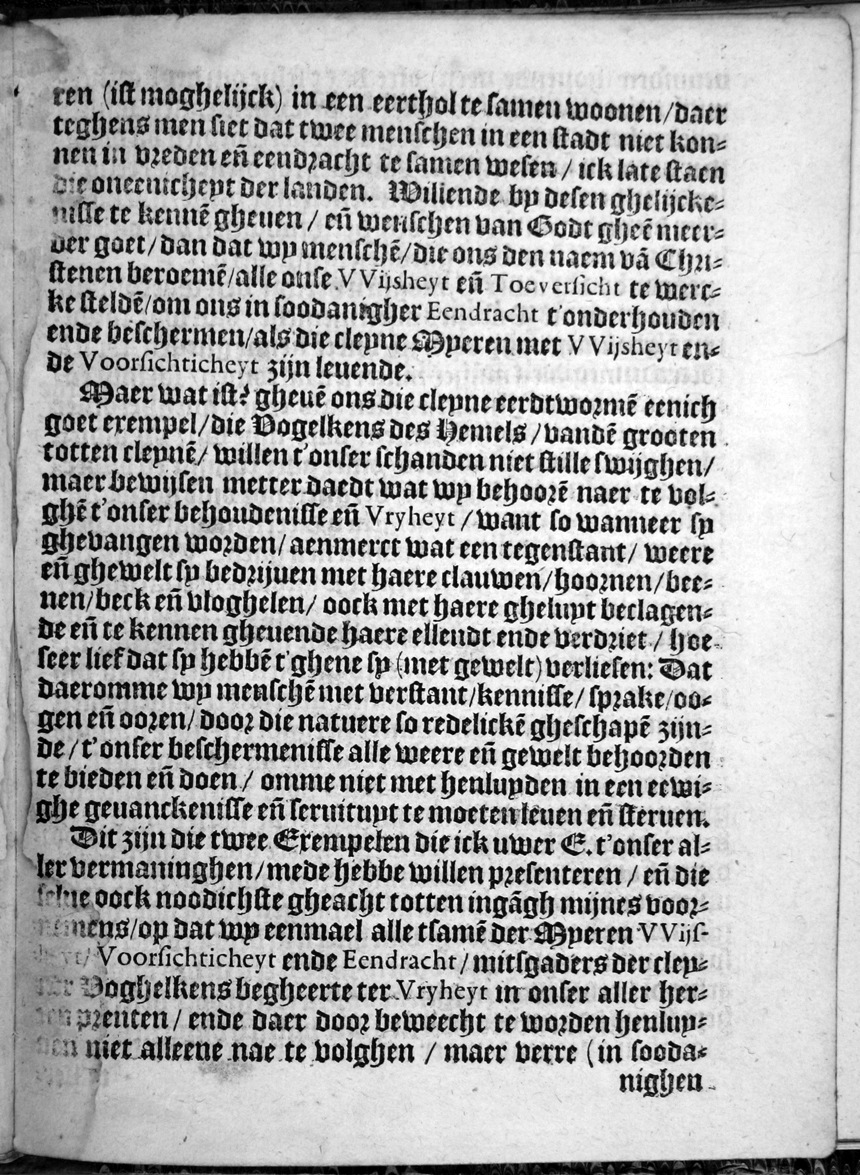 ren (ist moghelijck) in een eerthol te samen woonen/daer
teghens men siet dat twee menschen in een stadt niet kon⸗
nen in vreden eñ eendracht te samen wesen / ick late staen
die oneenicheyt der landen. Willende by desen ghelijcke⸗
nisse te kennē gheuen / eñ wenschen van Godt gheē meer⸗
der goet/dan dat wy menschē/die ons den naem vā Chri⸗
stenen beroemē/alle onse VVijsheyt eñ Toeversicht te werc⸗
ke steldē/om ons in soodanigher Eendracht t'onderhouden
ende beschermen/als die cleyne Myeren met VVijsheyt en⸗
de Voorsichticheyt zijn leuende.
Maer wat ist? gheuē ons die cleyne eerdtwormē eenich
goet exempel/die Vogelkens des Hemels / vandē grooten
totten cleynē/ willen t'onser schanden niet stille swijghen/
maer bewijsen metter daedt wat wy behoorē naer te vol⸗
ghē t'onser behoudenisse eñ Vryheyt / want so wanneer sy
ghevangen worden/ aenmerct wat een tegenstant/ weere
eñ ghewelt sy bedrijuen met haere clauwen/hoornen/bee⸗
nen/beck eñ vloghelen/ oock met haere gheluyt beclagen⸗
de eñ te kennen gheuende haere ellendt ende verdriet / hoe
seer lief dat sy hebbē t'ghene sy (met gewelt) verliesen: Dat
daeromme wy menschē met verstant/kennisse/ sprake/oo⸗
gen eñ ooren/ door die natuere so redelickē gheschapē zijn⸗
de / t'onser beschermenisse alle weere eñ gewelt behoorden
te bieden eñ doen / omme niet met henluyden in een eewi⸗
ghe geuanckenisse eñ seruituyt te moeten leuen eñ steruen.
Dit zijn die twee Exempelen die ick uwer E. t'onser al⸗
ler vermaninghen/mede hebbe willen presenteren / eñ die
selue oock noodichste gheacht totten ingāgh mijnes voor⸗
nemens/op dat wy eenmael alle tsamē der Myeren VVijs-
heyt/ Voorsichticheyt ende Eendracht / mitsgaders der cley⸗
ner Voghelkens begheerte ter Vryheyt in onser aller her⸗
ten prenten / ende daer door beweecht te worden henluy⸗
den niet alleene nae te volghen / maer verre (in sooda⸗
nighen